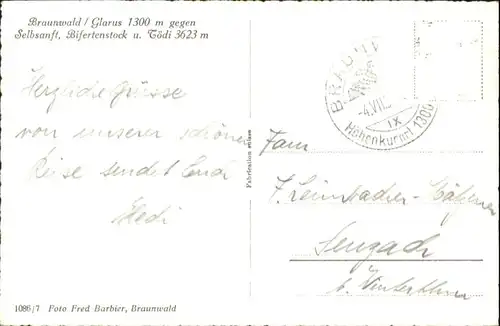 Braunwald / Glarus 1300 m gegen
Selbsanft, Bifertenstock u. Tödi 3623 m
Herzliche Grüsse
von unserer schönen
Reise sendet Euch
Hedi
1086/7 Foto Fred Barbier, Braunwald
Fabrication suisse
BRAUNW
-4.VII
IX
Höhenkurort 1300
Fam.
Seuzach
b. Winterthur